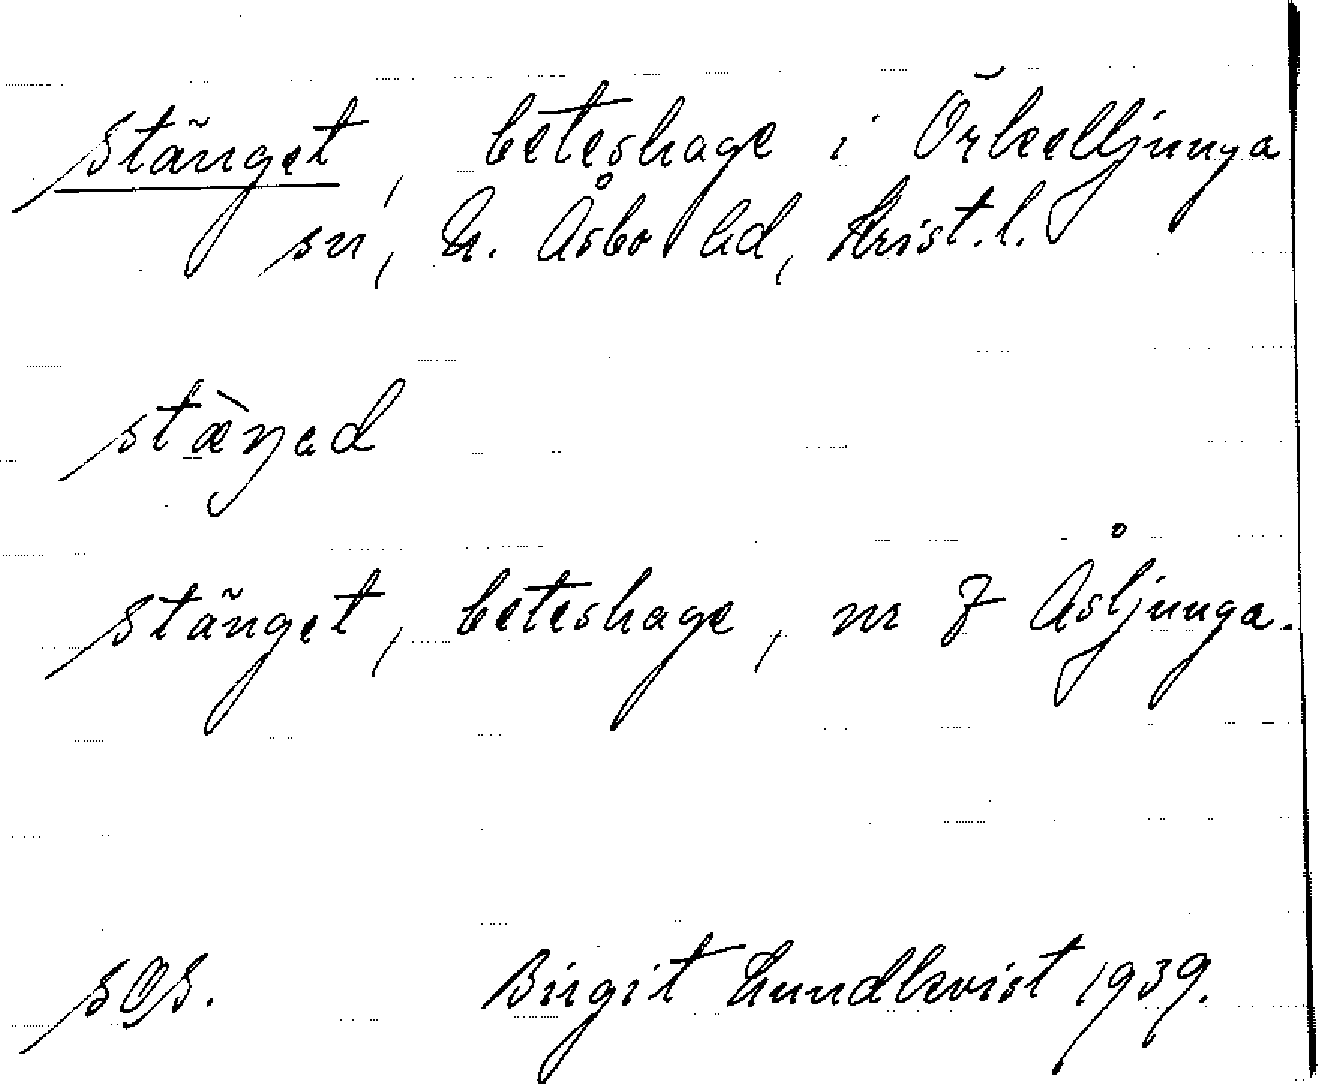 Stänget, beteshage i Örkelljunga
sn, N. Åsbo hd, Krist. l.
stæ̀ŋəd
Stänget, beteshage, nr 7 Åsljunga.
SOS. Birgit Lundkvist 1939.